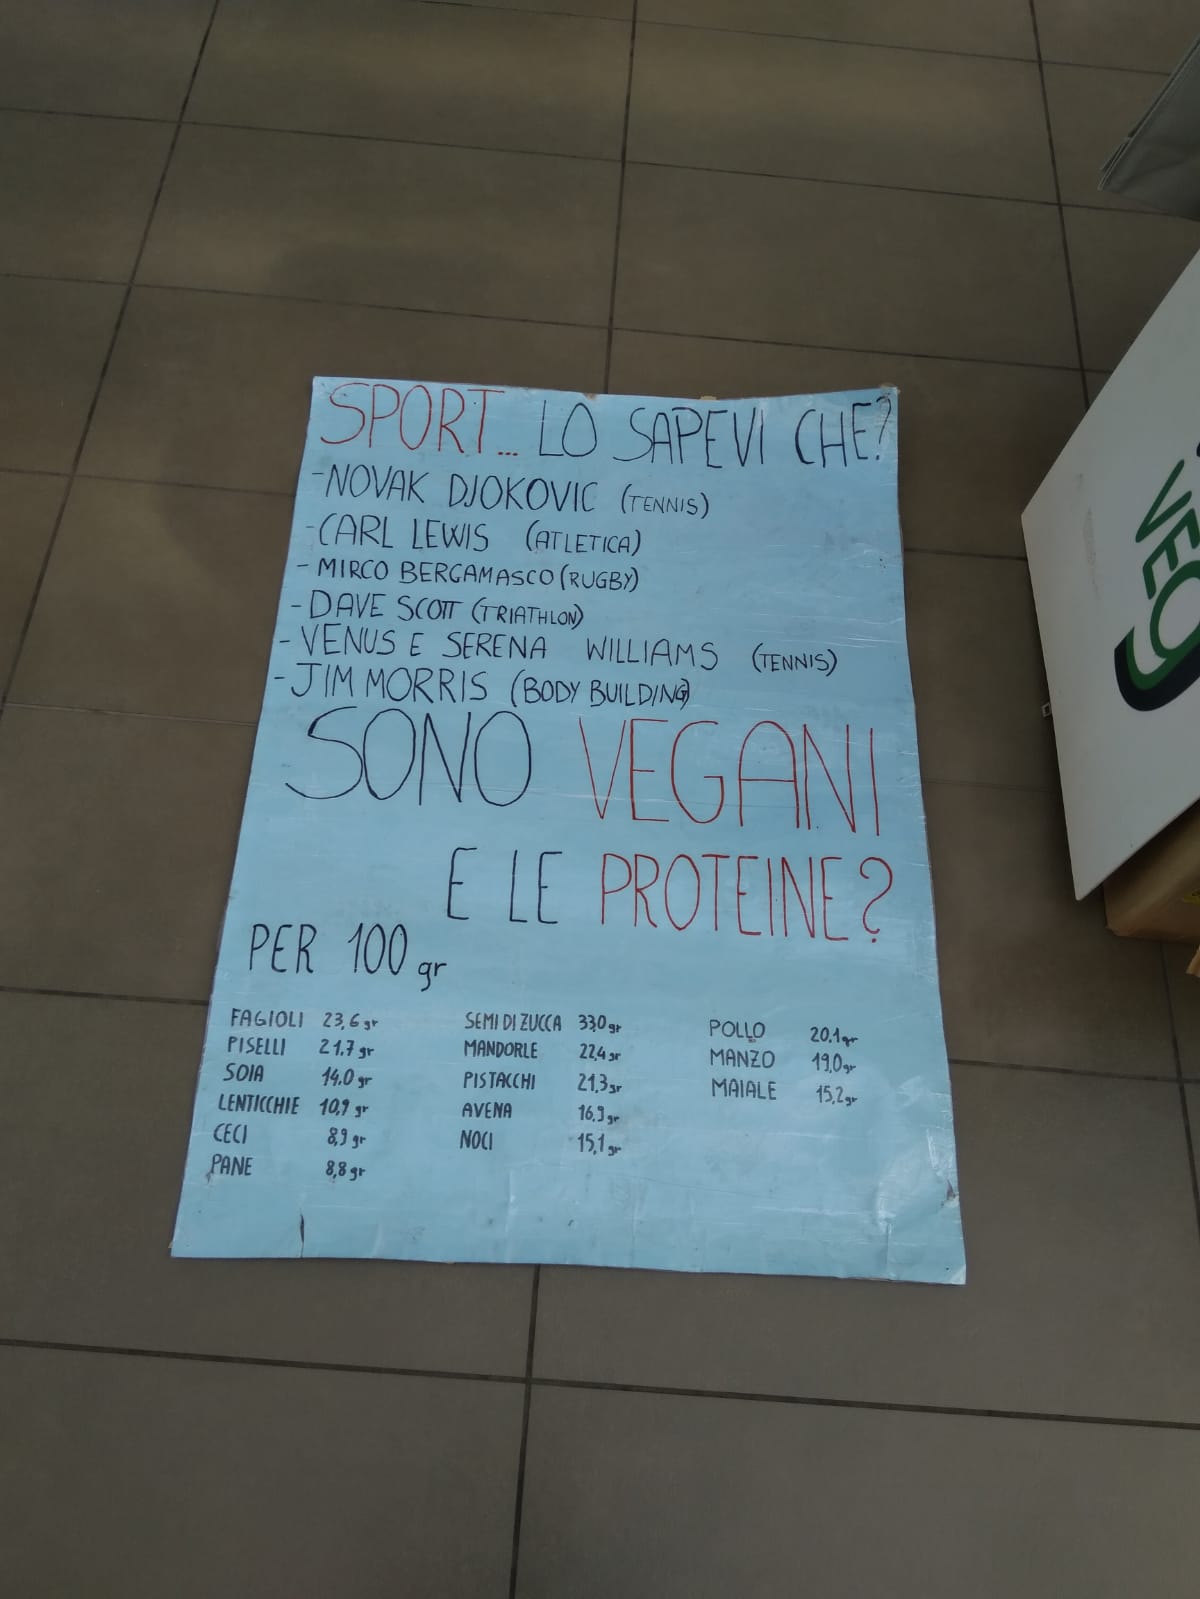 SPORT... LO SAPEVI CHE?
-NOVAK DJOKOVIC (TENNIS)
-CARL LEWIS (ATLETICA)
- MIRCO BERGAMASCO (RUGBY)
- DAVE SCOTT (TRIATHLON)
- VENUS E SERENA WILLIAMS (TENNIS)
-JIM MORRIS (BODY BUILDING)
SONO VEGANI
E LE PROTEINE?
PER 100 gr
FAGIOLI 23,6 gr
PISELLI 21.7 gr
SOIA 14.0 gr
LENTICCHIE 10,9 gr
CECI 8,9 gr
PANE 8,8 gr
SEMI DI ZUCCA 33,0 gr
MANDORLE 22,4 gr
PISTACCHI 21,3 gr
AVENA 16,9 gr
NOCI 15,1 gr
POLLO 20.1 gr
MANZO 19,0 gr
MAIALE 15,2 gr